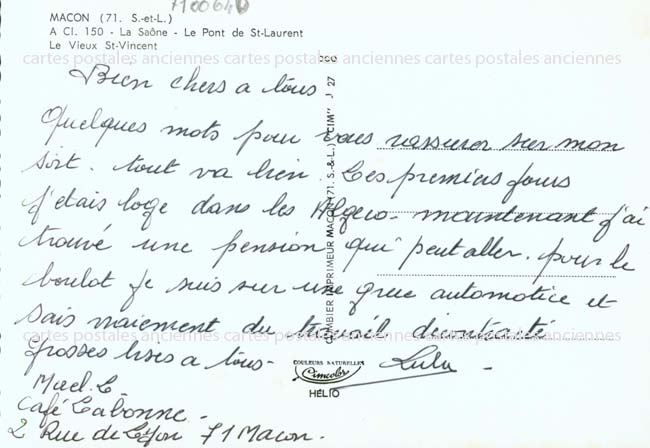 7100640
MACON (71. S.-et-L.)
A Cl. 150 - La Saône - Le Pont de St-Laurent
Le Vieux St-Vincent
cartes postales anciennes cartes postales anciennes cartes postales anciennes
Bien chers a tous
Quelques mots pour vous rassurer sur mon
sort. tout va bien. Les premiers jours
j'etais loge dans les Algeco - maintenant j'ai
trouvé une pension qui peut aller. pour le
boulot je suis sur une grue automotice et
sais vraiement du travail décontracté
cartes postales anciennes cartes postales anciennes cartes postales anciennes
Grosses bises a tous - Lulu -
COMBIER IMPRIMEUR MACON (71. S.-&-L.) "CIM" J 27
COULEURS NATURELLES
Cimcolor
HÉLIO
Café Labonne -
2 Rue de Lyon 71 Macon.